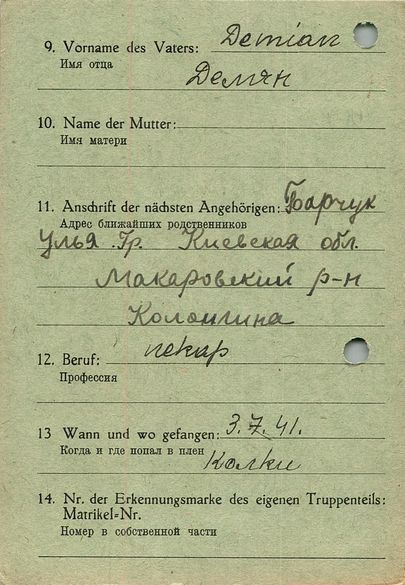 9. Vorname des Vaters: Demian
Имя отца
Демян
10. Name der Mutter:
Имя матери
11. Anschrift der nächsten Angehörigen: Барчук
Адрес ближайших родственников
Улья .Гр. Киевская обл.
Макаровский р-н
Колонгина
12. Beruf: пекар
Профессия
13 Wann und wo gefangen: 3.7.41.
Когда и где попал в плен
Колки
14. Nr. der Erkennungsmarke des eigenen Truppenteils:
Matrikel=Nr.
Номер в собственной части